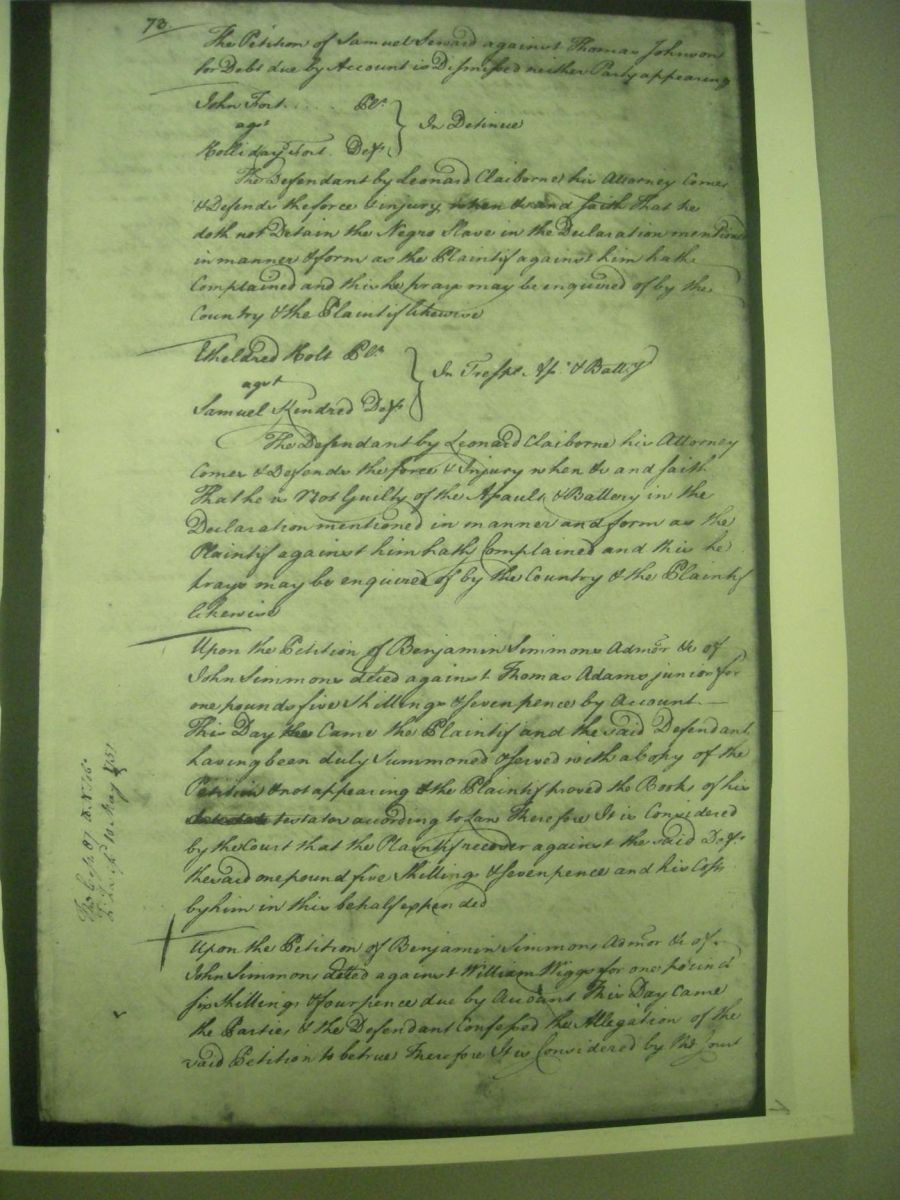 73.
The Petition of Samuel Seward against Thomas Johnson
for Debt due by Account is Dismissed neither Party appearing
John Fort .... Plt.
agst
Holliday Fort Deft
In Detinue
The Defendant by Leonard Claiborne his Attorney Comes
& Defends the force & injury when &c and saith That he
doth not Detain the Negro Slave in the Declaration mentioned
in manner & form as the Plaintif against him hath
Complained and this he prays may be enquired of by the
Country & the Plaintif likewise
Etheldred Holt Plt.
agst
Samuel Kindred Deft
In Tresps. As. & Battry
The Defendant by Leonard Claiborne his Attorney
Comes & Defends the force & Injury when &c and saith
That he is Not Guilty of the Assault & Battery in the
Declaration mentioned in manner and form as the
Plaintif against him hath Complained and this he
prays may be enquired of by the Country & the Plaintif
likewise
Upon the Petition of Benjamin Simmons Admor &c of
John Simmons deced against Thomas Adams junior for
one pounds five shillings & seven pence by Account
This Day Came the Plaintif and the said Defendant
having been duly Summoned & served with a Copy of the
Petition & not appearing & the Plaintif proved the Books of his
testator according to Law Therefore It is Considered
by the Court that the Plaintif recover against the said Deft.
the said one pound five shillings & seven pence and his Costs
by him in this behalf expended
Upon the Petition of Benjamin Simmons Admor &c of
John Simmons deced against William Wiggs for one pound
six shillings & four pence due by Account This Day Came
the Parties & the Defendant Confessed the Allegation of the
said Petition to be true Therefore It is Considered by the Court
10 May 1751